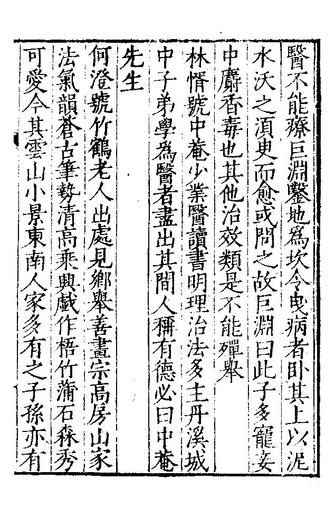 醫不能療巨淵鑿地為坎令曳病者卧其上以泥
水沃之湏臾而愈或問之故巨淵曰此子多寵妾
中麝香毒也其他治效類是不能殫舉
林愭號中菴少業醫讀書明理治法多主丹溪城
中子弟學為醫者盡出其間人稱有德必曰中菴
先生
何澄號竹鶴老人出處見鄉舉善畫宗高房山家
法氣韻蒼古筆勢清高乘興戲作梧竹蒲石森秀
可愛今其雲山小景東南人家多有之子孫亦有